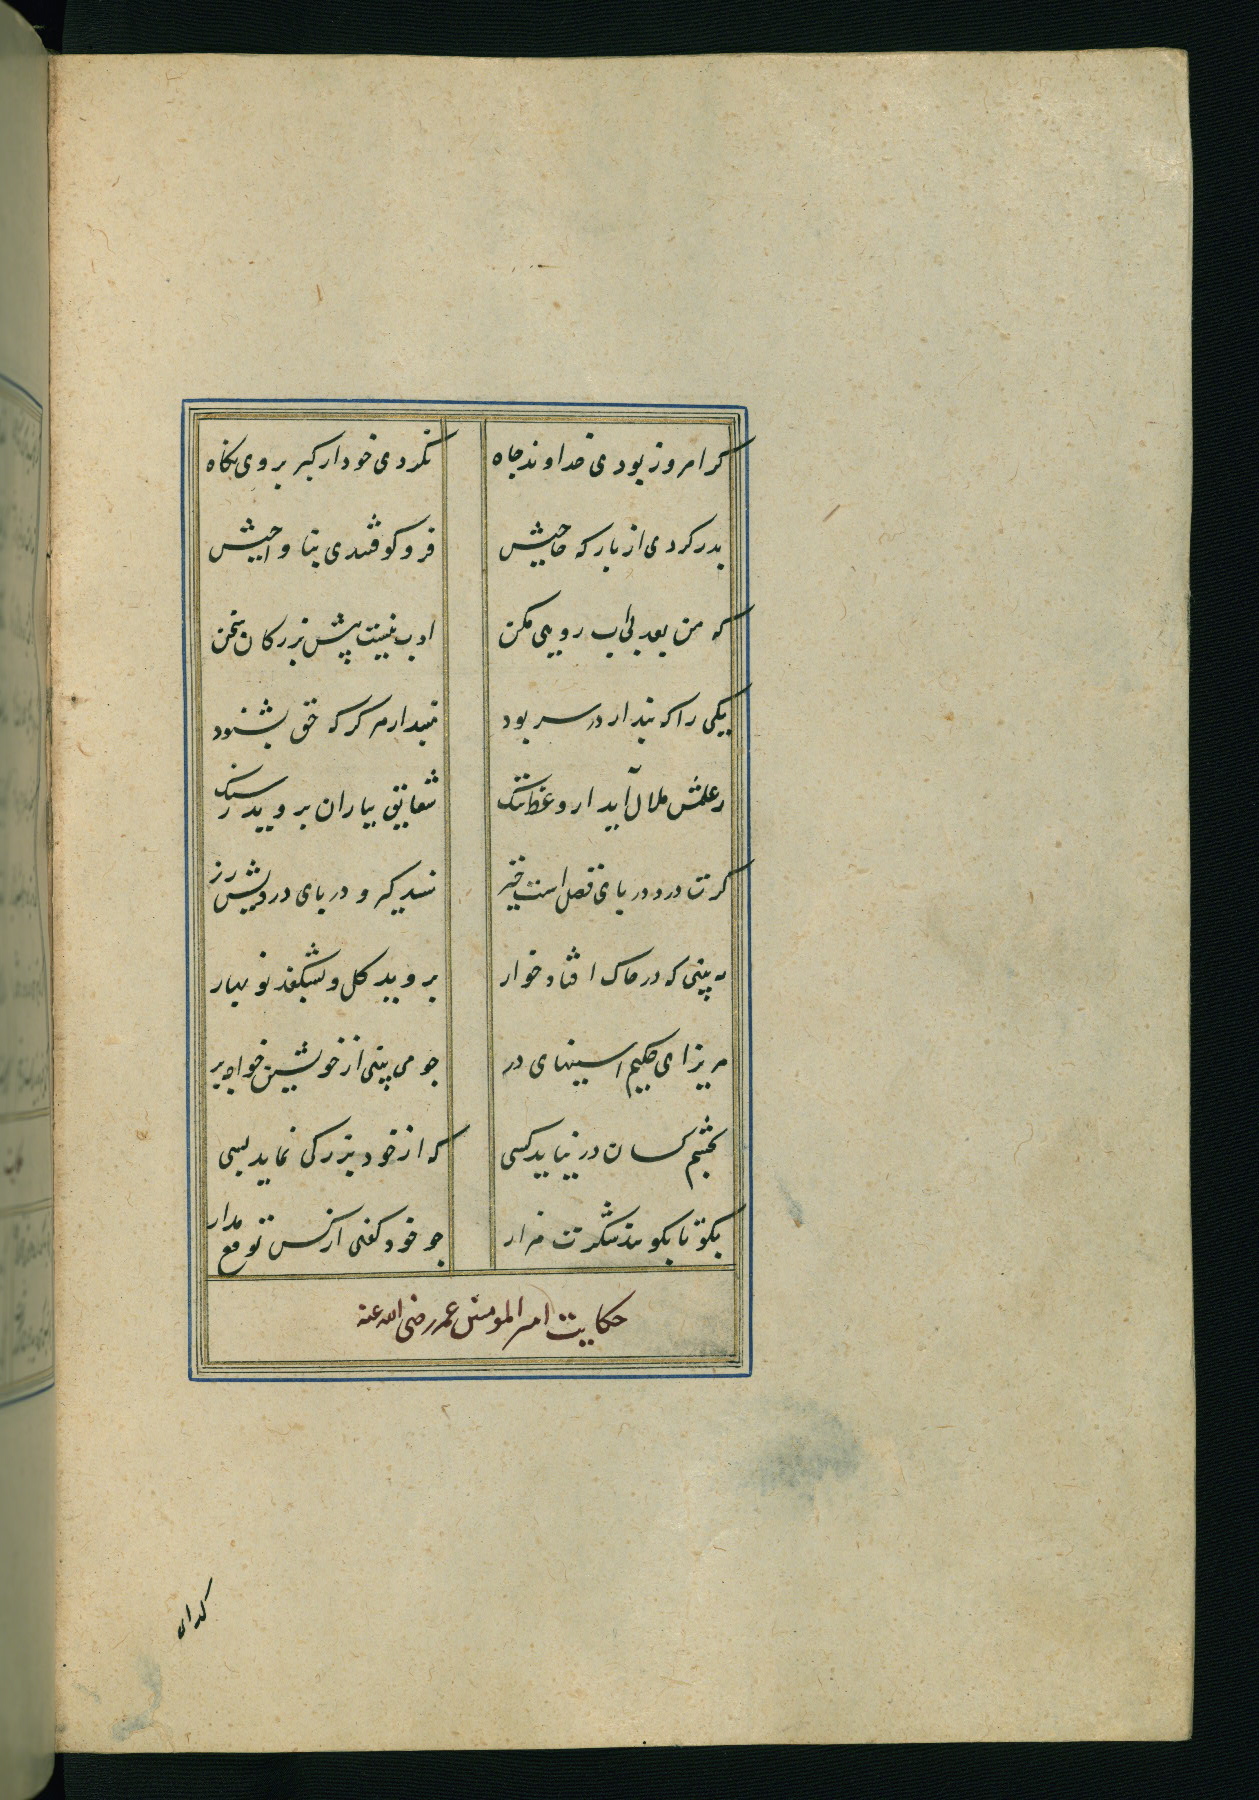 کر امروز بودی خداوند جاه نکردی خود از کبر بر وی نکاه
بدر کردی از بارکه حاجبش فرو کوفتندی بنا واجبش
که من بعد بی اب رویی مکن ادب نیست پیش بزرکان سخن
یکی را که پندار در سر بود مپندار هرکز که حق بشنود
ز علمش ملال آید از وعظ ننک شقایق بباران بروید ز سنک
کرت در دریای فضل است خیز بتذکیر در پای درویش ریز
نه بینی که در خاک افتاد خوار بروید کل و بشکفد نو بهار
مریز ای حکیم استینهای در جو می بینی از خویشتن خواجه پر
بچشم کسان در نیاید کسی که از خود بزرکی نماید بسی
مکو تا بکویند شکرت هزار جو خود کفتی از کس توقع مدار
حکایت امیر المومنین عمر رضی الله عنه
کدای